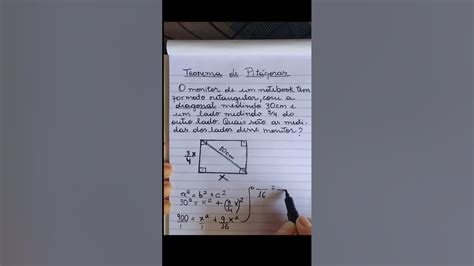 Teorema de Pitágoras
O monitor de um notebook tem
formato retangular, com a
diagonal medindo 30cm e
um lado medindo 3/4 do
outro lado. Quais são as medi-
das dos lados desse monitor?
3/4 x
30cm
x
a² = b² + c²
30² = x² + (3/4 x)²
900/1 = x²/1 + 9/16 x²
/16 =